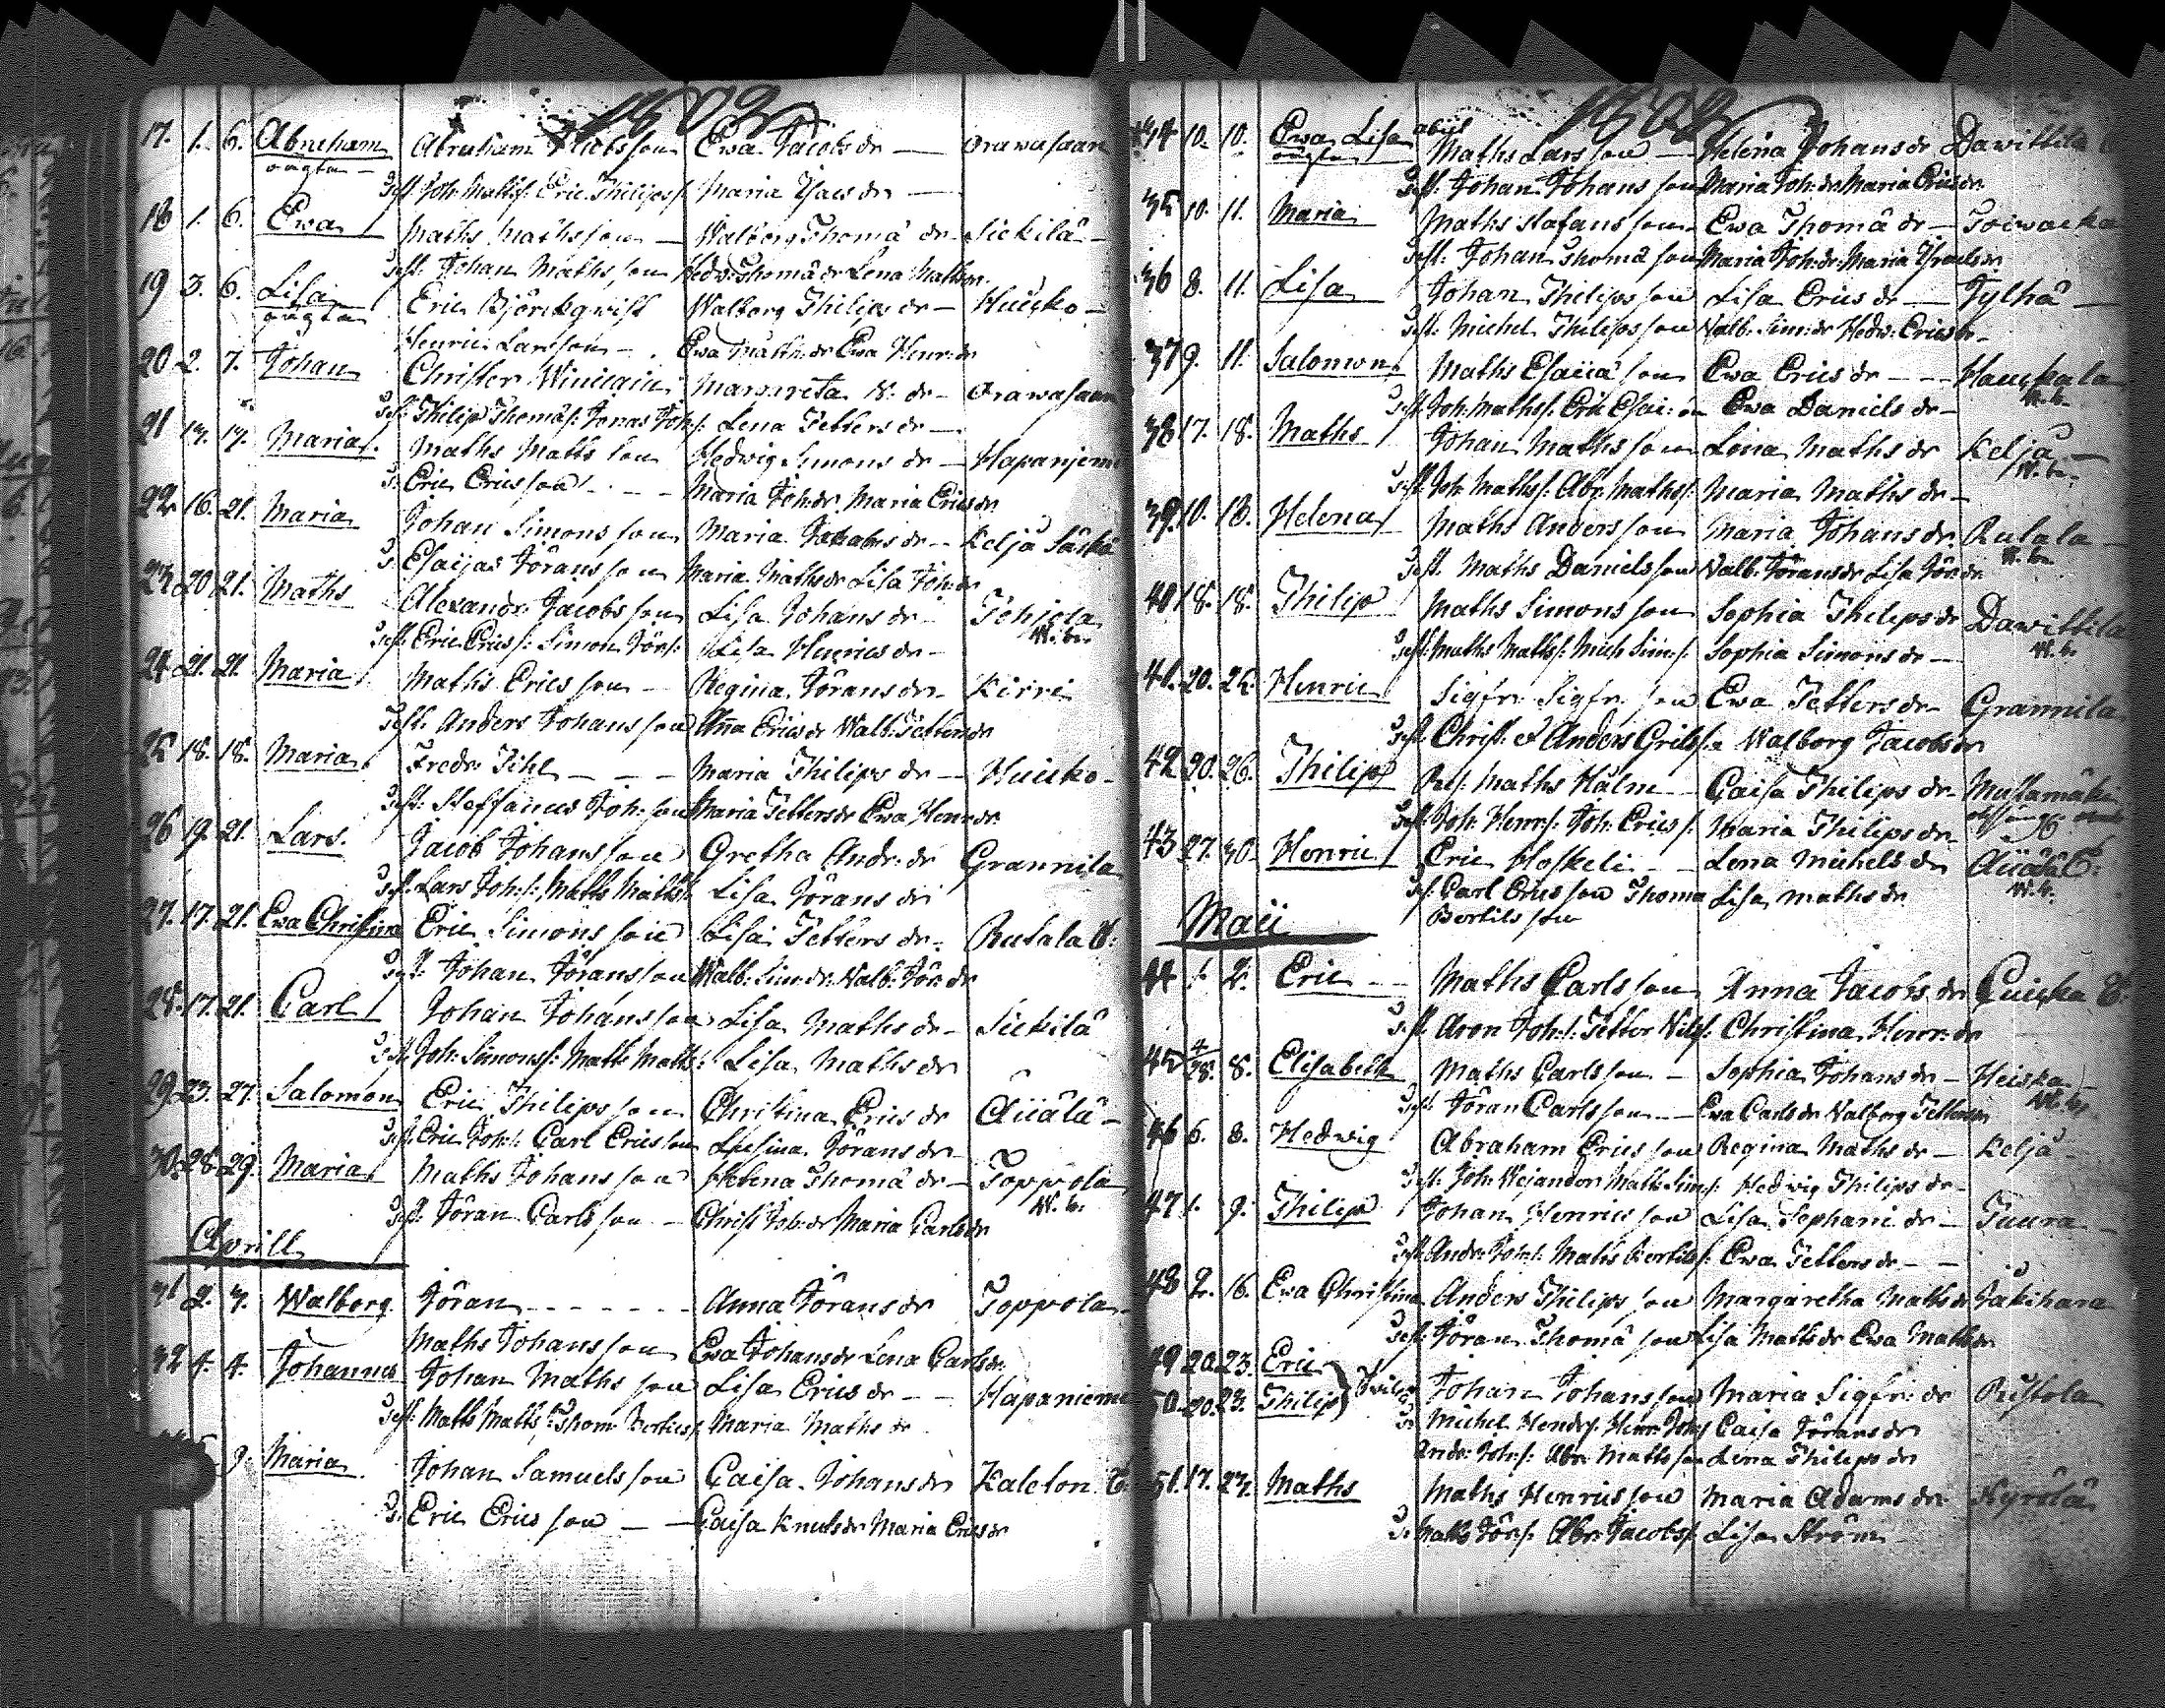 1802
17. 1. 6. Abraham Abraham Jacobs son Ewa Jacobs dr — Orawasaari
oägta —
Test. Joh: Maths s: Eric Philips s: Maria Isacs dr —
18 1. 6. Ewa Maths Mathsson — Walborg Thomä dr — Siekilä —
Test: Johan Mathsson Hedw: Thomä dr Lena Maths dr
19 3. 6. Lisa Eric Björckqwist Walborg Philips dr — Huicko —
oägta
Henric Larsson — . Ewa Math: dr Ewa Henr: dr
20 2. 7. Johan Christer Winicain Margareta N: dr — Orawasaari
Test: Philip Thomä s: Jonas Joh: s: Lena Petters dr —
21 13. 17. Maria Maths Maths son Hedwig Simons dr — Hapanjemi
T: Eric Ericsson . — — Maria Joh: dr Maria Erics dr
22 16. 21. Maria Johan Simons son Maria Jacobs dr — Keljä
T: Esaijas Jörans son Maria Maths dr Lisa Joh: dr
23 20 21. Maths Alexandr Jacobs son Lisa Johans dr — Pohjola
W. b.
Test: Eric Erics s: Simon Jör s: Lisa Henrics dr —
24 21. 21. Maria Maths Erics son — Regina Jörans dr — Kirri
Test: Anders Johans son Anna Erics dr Walb: Petters dr
25 18. 18. Maria Fredr: Pihl — — — Maria Philips dr — Huicko —
Test: Steffanus Joh: son Maria Petters dr Ewa Henr: dr
26 19. 21. Lars. Jacob Johans son Gretha Andr: dr Grannila
Test: Lars Joh: s: Maths Maths s: Lisa Jörans dr
27. 17. 21. Ewa Christina Eric Simons son Lisa Petters dr — Rutala T:
Test: Johan Jörans son Walb: Sim: dr Walb: Jör: dr
28. 17. 21. Carl Johan Johans son Lisa Maths dr — Siekilä
Test: Joh: Simons s: Maths Maths s: Lisa Maths dr
29. 23. 27. Salomon Eric Philips son Christina Erics dr Äijälä —
Test: Eric Joh: s: Carl Erics son Lusina Jörans dr —
30. 28. 29. Maria Maths Johans son Helena Thomä dr — Poppola
W. b.
Test: Jöran Carls son — Christ: Joh: dr Maria Carls dr
Aprill
31 2. 3. Walborg Jöran — — — — — Anna Jörans dr Poppola —
Maths Johans son Ewa Johans dr Lena Carls dr
32 4. 4. Johannes Johan Maths son Lisa Erics dr — — Hapaniemi
Test: Maths Maths s: Thom: Bertils s: Maria Maths dr
9. Maria Johan Samuels son Caisa Johans dr Kaleton T:
T: Eric Erics son — — Caisa Knuts dr Maria Erics dr
1802
34 10. 10. Ewa Lisa Maths Lars son — Helena Johans dr Dawittila
oägta
Test: Johan Johans son Maria Joh: dr Maria Erics dr
35 10. 11. Maria Maths Stafans son Ewa Thomä dr — Toiwacka
Test: Johan Thomä son Maria Joh: dr Maria Israels dr
36 8. 11. Lisa Johan Philips son Lisa Erics dr — Pylhä —
Test: Michel Philips son Walb: Sim: dr Hedw: Erics dr —
37 9. 11. Salomon Maths Esaiiä son Ewa Erics dr — — Hauckala
W. b.
Test: Joh: Maths s: Eric Esai: s: Ewa Daniels dr —
38 17. 18. Maths Johan Maths son Lena Maths dr Keljä —
W. b.
Test: Joh: Maths s: Abr: Maths s: Maria Maths dr —
39. 10. 18. Helena Maths Anders son Maria Johans dr Rutala —
W. b.
Test. Maths Daniels son Walb: Jörans dr Lisa Jör: dr
40 18. 18. Philip Maths Simons son Sophia Philips dr Dawittila
W. b.
Test: Maths Maths s: Mich: Sim: s: Sophia Simons dr —
41. 20. 25. Henric Sigfr: Sigfr: son Ewa Petters dr — Grannila
Test: Christ: & Anders Grels s: Walborg Jacobs dr
42 20. 26. Philip Maths Hälm — Caisa Philips dr — Mustamäki
Test: Joh: Henr s: Joh: Erics s: Maria Philips dr —
43 27. 30. Henric Eric Hoskeli — — Lena Michels dr Äijälä T:
W. b.
Test: Carl Erics son Thoma Lisa Maths dr
Bertils son
Maii
44 1. 2. Eric — Maths Carls son Anna Jacobs dr Cuicka T:
Test: Aron Joh: s: Petter Nils s: Christina Henr: dr
45 4/28. 8. Elisabeth Maths Carls son — Sophia Johans dr — Heiska —
W. b.
Test: Jöran Carls son — Ewa Carls dr Walborg Petters dr
46 6. 8. Hedwig Abraham Erics son Regina Maths dr — Keljä —
Test: Joh: Wejander Maths Sim: s: Hedwig Philips dr —
47 1. 9. Philip Johan Henrics son Lisa Stephani dr — Puura —
Test: Andr: Joh: s: Maths Bertils s: Ewa Petters dr — —
48 2. 16. Ewa Christina Anders Philips son Margaretha Maths dr Jakihara
Test: Jöran Thomä son Lisa Maths dr Ewa Maths dr
49 20. 23. Eric Johan Johans son Maria Sigfr: dr Ristola
50. 20. 23. Philip
T: Michel Hendr s: Henr: Joh: s: Caisa Jörans dr
Andr: Joh: s: Abr: Maths son Lena Philips dr
51. 17. 23. Maths Maths Henrics son Maria Adams dr Nyrölä
T: Maths Jör: s: Abr: Jacobs s: Lisa Ström